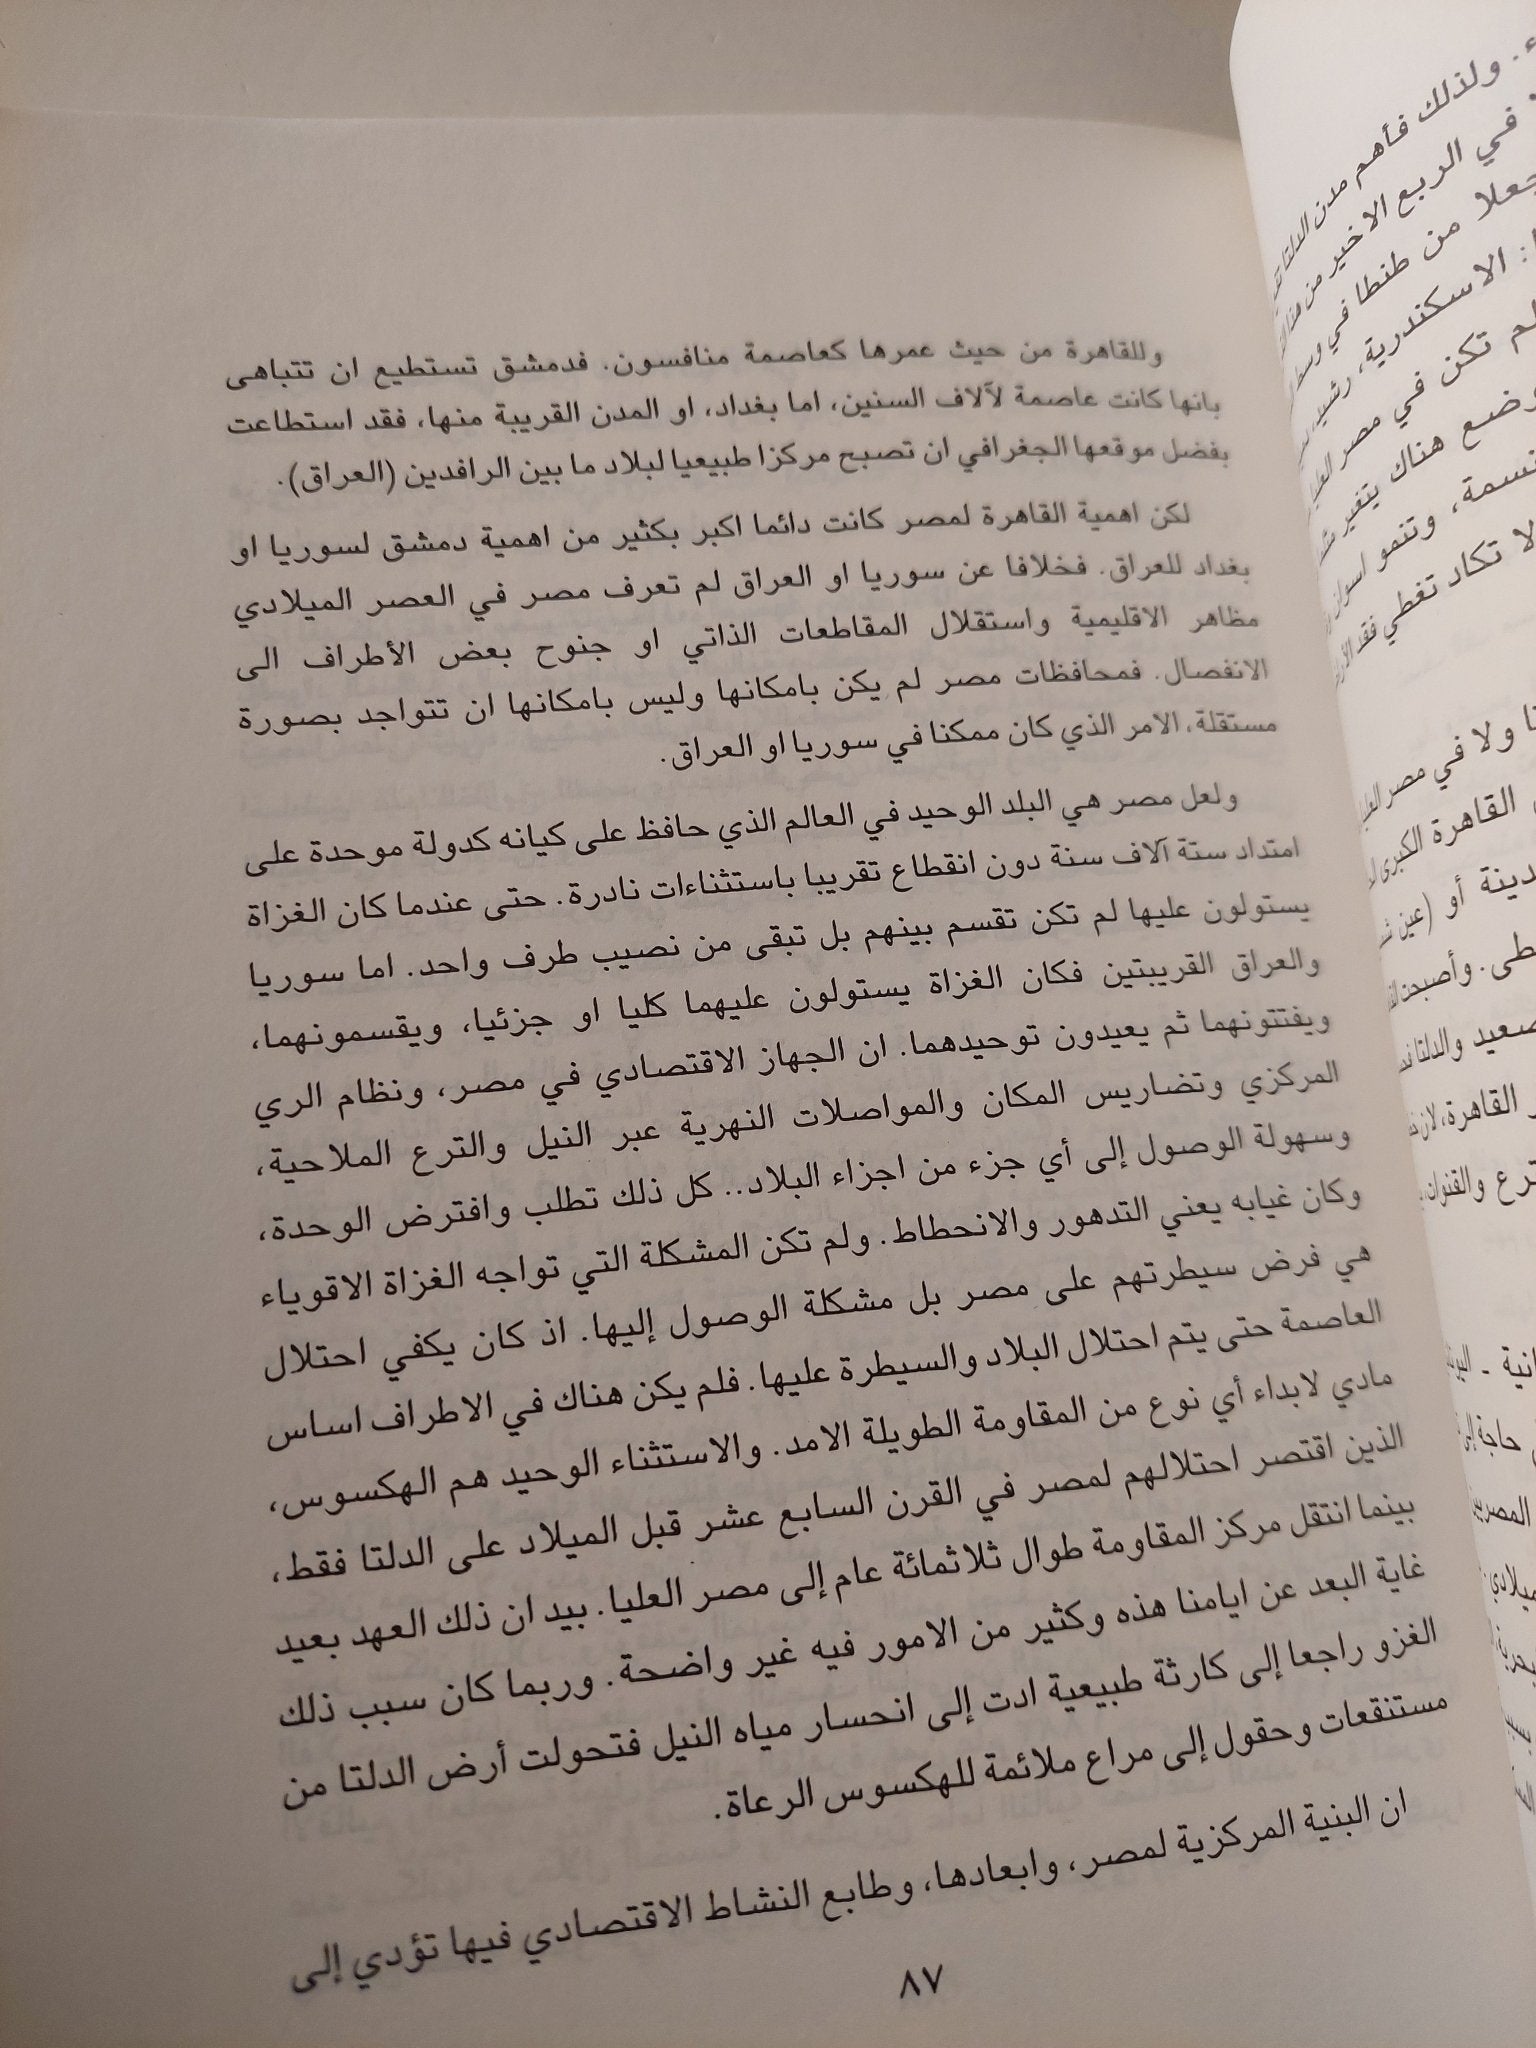 وللقاهرة من حيث عمرها كعاصمة منافسون. فدمشق تستطيع ان تتباهى
بانها كانت عاصمة لآلاف السنين، اما بغداد، او المدن القريبة منها، فقد استطاعت
بفضل موقعها الجغرافي ان تصبح مركزا طبيعيا لبلاد ما بين الرافدين (العراق).
لكن اهمية القاهرة لمصر كانت دائما اكبر بكثير من اهمية دمشق لسوريا او
بغداد للعراق. فخلافا عن سوريا او العراق لم تعرف مصر في العصر الميلادي
مظاهر الاقليمية واستقلال المقاطعات الذاتي او جنوح بعض الأطراف الى
الانفصال. فمحافظات مصر لم يكن بامكانها وليس بامكانها ان تتواجد بصورة
مستقلة، الامر الذي كان ممكنا في سوريا او العراق.
ولعل مصر هي البلد الوحيد في العالم الذي حافظ على كيانه كدولة موحدة على
امتداد ستة آلاف سنة دون انقطاع تقريبا باستثناءات نادرة. حتى عندما كان الغزاة
يستولون عليها لم تكن تقسم بينهم بل تبقى من نصيب طرف واحد. اما سوريا
والعراق القريبتين فكان الغزاة يستولون عليهما كليا او جزئيا، ويقسمونهما،
ويفتتونهما ثم يعيدون توحيدهما. ان الجهاز الاقتصادي في مصر، ونظام الري
المركزي وتضاريس المكان والمواصلات النهرية عبر النيل والترع الملاحية،
وسهولة الوصول إلى أي جزء من اجزاء البلاد.. كل ذلك تطلب وافترض الوحدة،
وكان غيابه يعني التدهور والانحطاط. ولم تكن المشكلة التي تواجه الغزاة الاقوياء
هي فرض سيطرتهم على مصر بل مشكلة الوصول إليها. اذ كان يكفي احتلال
العاصمة حتى يتم احتلال البلاد والسيطرة عليها. فلم يكن هناك في الاطراف اساس
مادي لابداء أي نوع من المقاومة الطويلة الامد. والاستثناء الوحيد هم الهكسوس،
الذين اقتصر احتلالهم لمصر في القرن السابع عشر قبل الميلاد على الدلتا فقط،
بينما انتقل مركز المقاومة طوال ثلاثمائة عام إلى مصر العليا. بيد ان ذلك العهد بعيد
غاية البعد عن ايامنا هذه وكثير من الامور فيه غير واضحة. وربما كان سبب ذلك
الغزو راجعا إلى كارثة طبيعية ادت إلى انحسار مياه النيل فتحولت أرض الدلتا من
مستنقعات وحقول إلى مراع ملائمة للهكسوس الرعاة.
ان البنية المركزية لمصر، وابعادها، وطابع النشاط الاقتصادي فيها تؤدي إلى
٨٧
ولذلك فأهم مدن الدلتا
في الربع الاخير من
من طنطا في وسط
: الاسكندرية، رشيد،
تكن في مصر العليا
هناك يتغير
وتنمو اسوان
لا تكاد تغطي فقد
ولا في مصر العليا
القاهرة الكبرى
أو (عين
وأصبحت
والدلتا
القاهرة، لان
والقنوان،
حاجة إلى